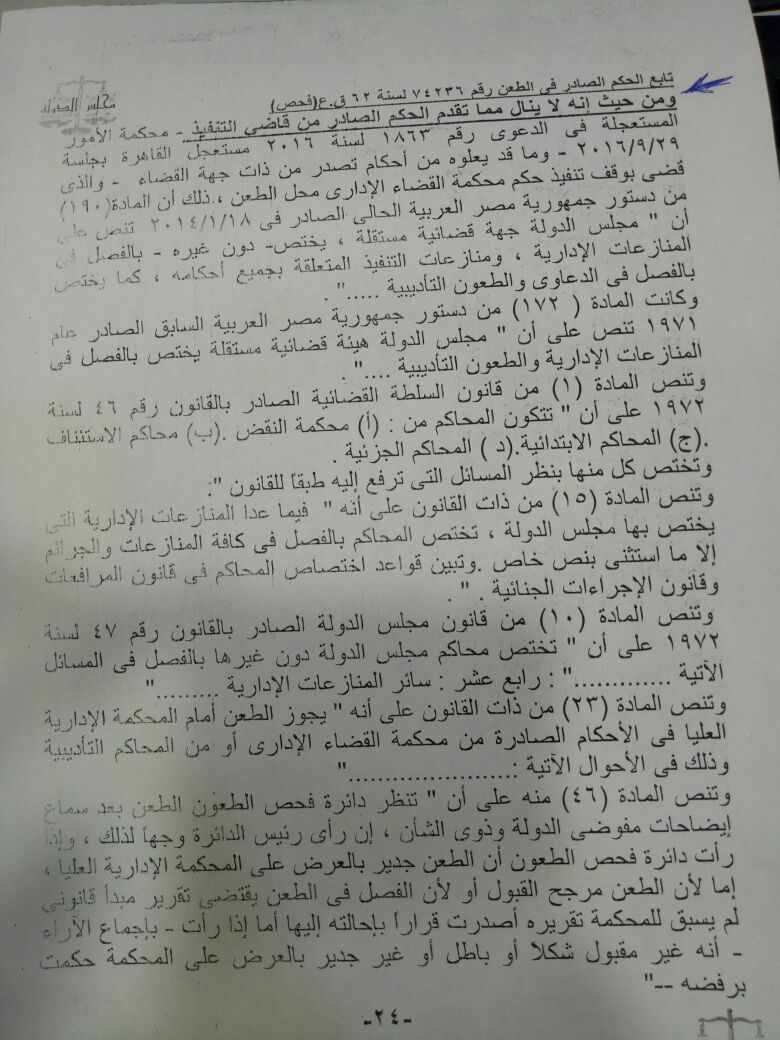 تابع الحكم الصادر فى الطعن رقم ٧٤٢٣٦ لسنة ٦٢ ق.ع(فحص)
مجلس الدولة
ومن حيث إنه لا ينال مما تقدم الحكم الصادر من قاضي التنفيذ - محكمة الأمور
المستعجلة فى الدعوى رقم ١٨٦٣ لسنة ٢٠١٦ مستعجل القاهرة بجلسة
٢٠١٦/٩/٢٩ - وما قد يعلوه من أحكام تصدر من ذات جهة القضاء - والذى
قضى بوقف تنفيذ حكم محكمة القضاء الإدارى محل الطعن ، ذلك أن المادة(١٩٠)
من دستور جمهورية مصر العربية الحالى الصادر فى ٢٠١٤/١/١٨ تنص على
أن " مجلس الدولة جهة قضائية مستقلة ، يختص- دون غيره - بالفصل فى
المنازعات الإدارية ، ومنازعات التنفيذ المتعلقة بجميع أحكامه ، كما يختص
بالفصل فى الدعاوى والطعون التأديبية ....." .
وكانت المادة ( ١٧٢) من دستور جمهورية مصر العربية السابق الصادر عام
١٩٧١ تنص على أن " مجلس الدولة هيئة قضائية مستقلة يختص بالفصل فى
المنازعات الإدارية والطعون التأديبية ...." .
وتنص المادة (١) من قانون السلطة القضائية الصادر بالقانون رقم ٤٦ لسنة
١٩٧٢ على أن " تتكون المحاكم من : (أ) محكمة النقض .(ب) محاكم الاستئناف
.(ج) المحاكم الابتدائية.(د ) المحاكم الجزئية .
وتختص كل منها بنظر المسائل التى ترفع إليه طبقاً للقانون ":
وتنص المادة (١٥) من ذات القانون على أنه " فيما عدا المنازعات الإدارية التى
يختص بها مجلس الدولة ، تختص المحاكم بالفصل فى كافة المنازعات والجرائم
إلا ما استثنى بنص خاص .وتبين قواعد اختصاص المحاكم فى قانون المرافعات
وقانون الإجراءات الجنائية . " .
وتنص المادة (١٠) من قانون مجلس الدولة الصادر بالقانون رقم ٤٧ لسنة
١٩٧٢ على أن " تختص محاكم مجلس الدولة دون غيرها بالفصل فى المسائل
الآتية ............" : رابع عشر : سائر المنازعات الإدارية ........."
وتنص المادة (٢٣) من ذات القانون على أنه " يجوز الطعن أمام المحكمة الإدارية
العليا فى الأحكام الصادرة من محكمة القضاء الإدارى أو من المحاكم التأديبية
وذلك فى الأحوال الآتية :......................"
وتنص المادة (٤٦) منه على أن " تنظر دائرة فحص الطعون الطعن بعد سماع
إيضاحات مفوضى الدولة وذوى الشأن ، إن رأى رئيس الدائرة وجهاً لذلك ، وإذا
رأت دائرة فحص الطعون أن الطعن جدير بالعرض على المحكمة الإدارية العليا ،
إما لأن الطعن مرجح القبول أو لأن الفصل فى الطعن يقتضى تقرير مبدأ قانونى
لم يسبق للمحكمة تقريره أصدرت قراراً بإحالته إليها أما إذا رأت - بإجماع الآراء
- أنه غير مقبول شكلا أو باطل أو غير جدير بالعرض على المحكمة حكمت
برفضه --"
-٢٤-